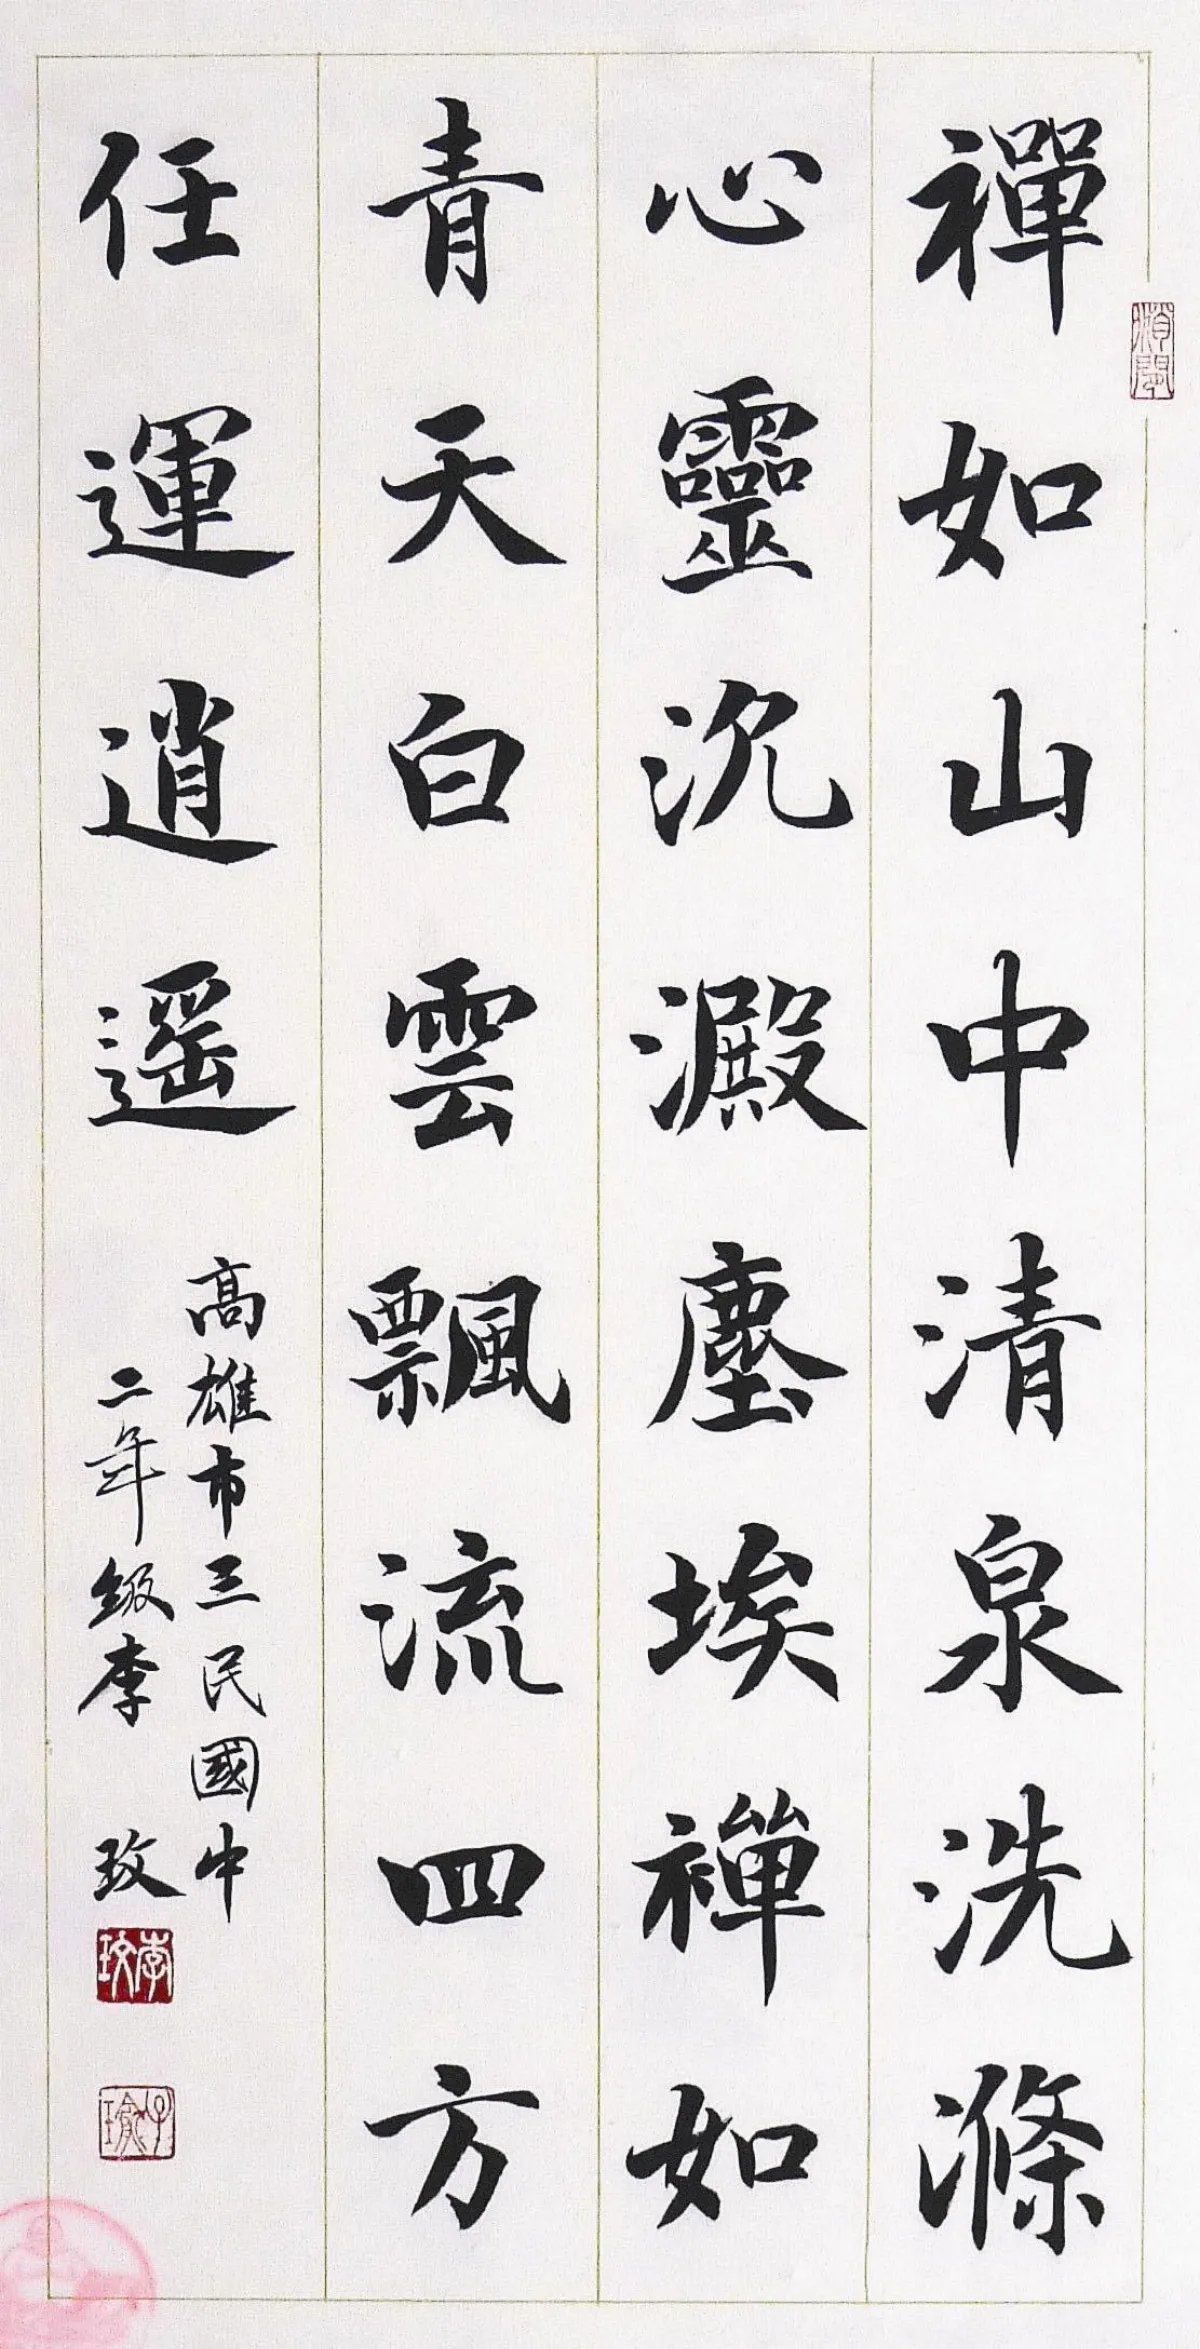 禪如山中清泉洗滌
心靈沉澱塵埃禪如
青天白雲飄流四方
任運逍遙
高雄市三民國中
二年級李玫
李玫
子瑜